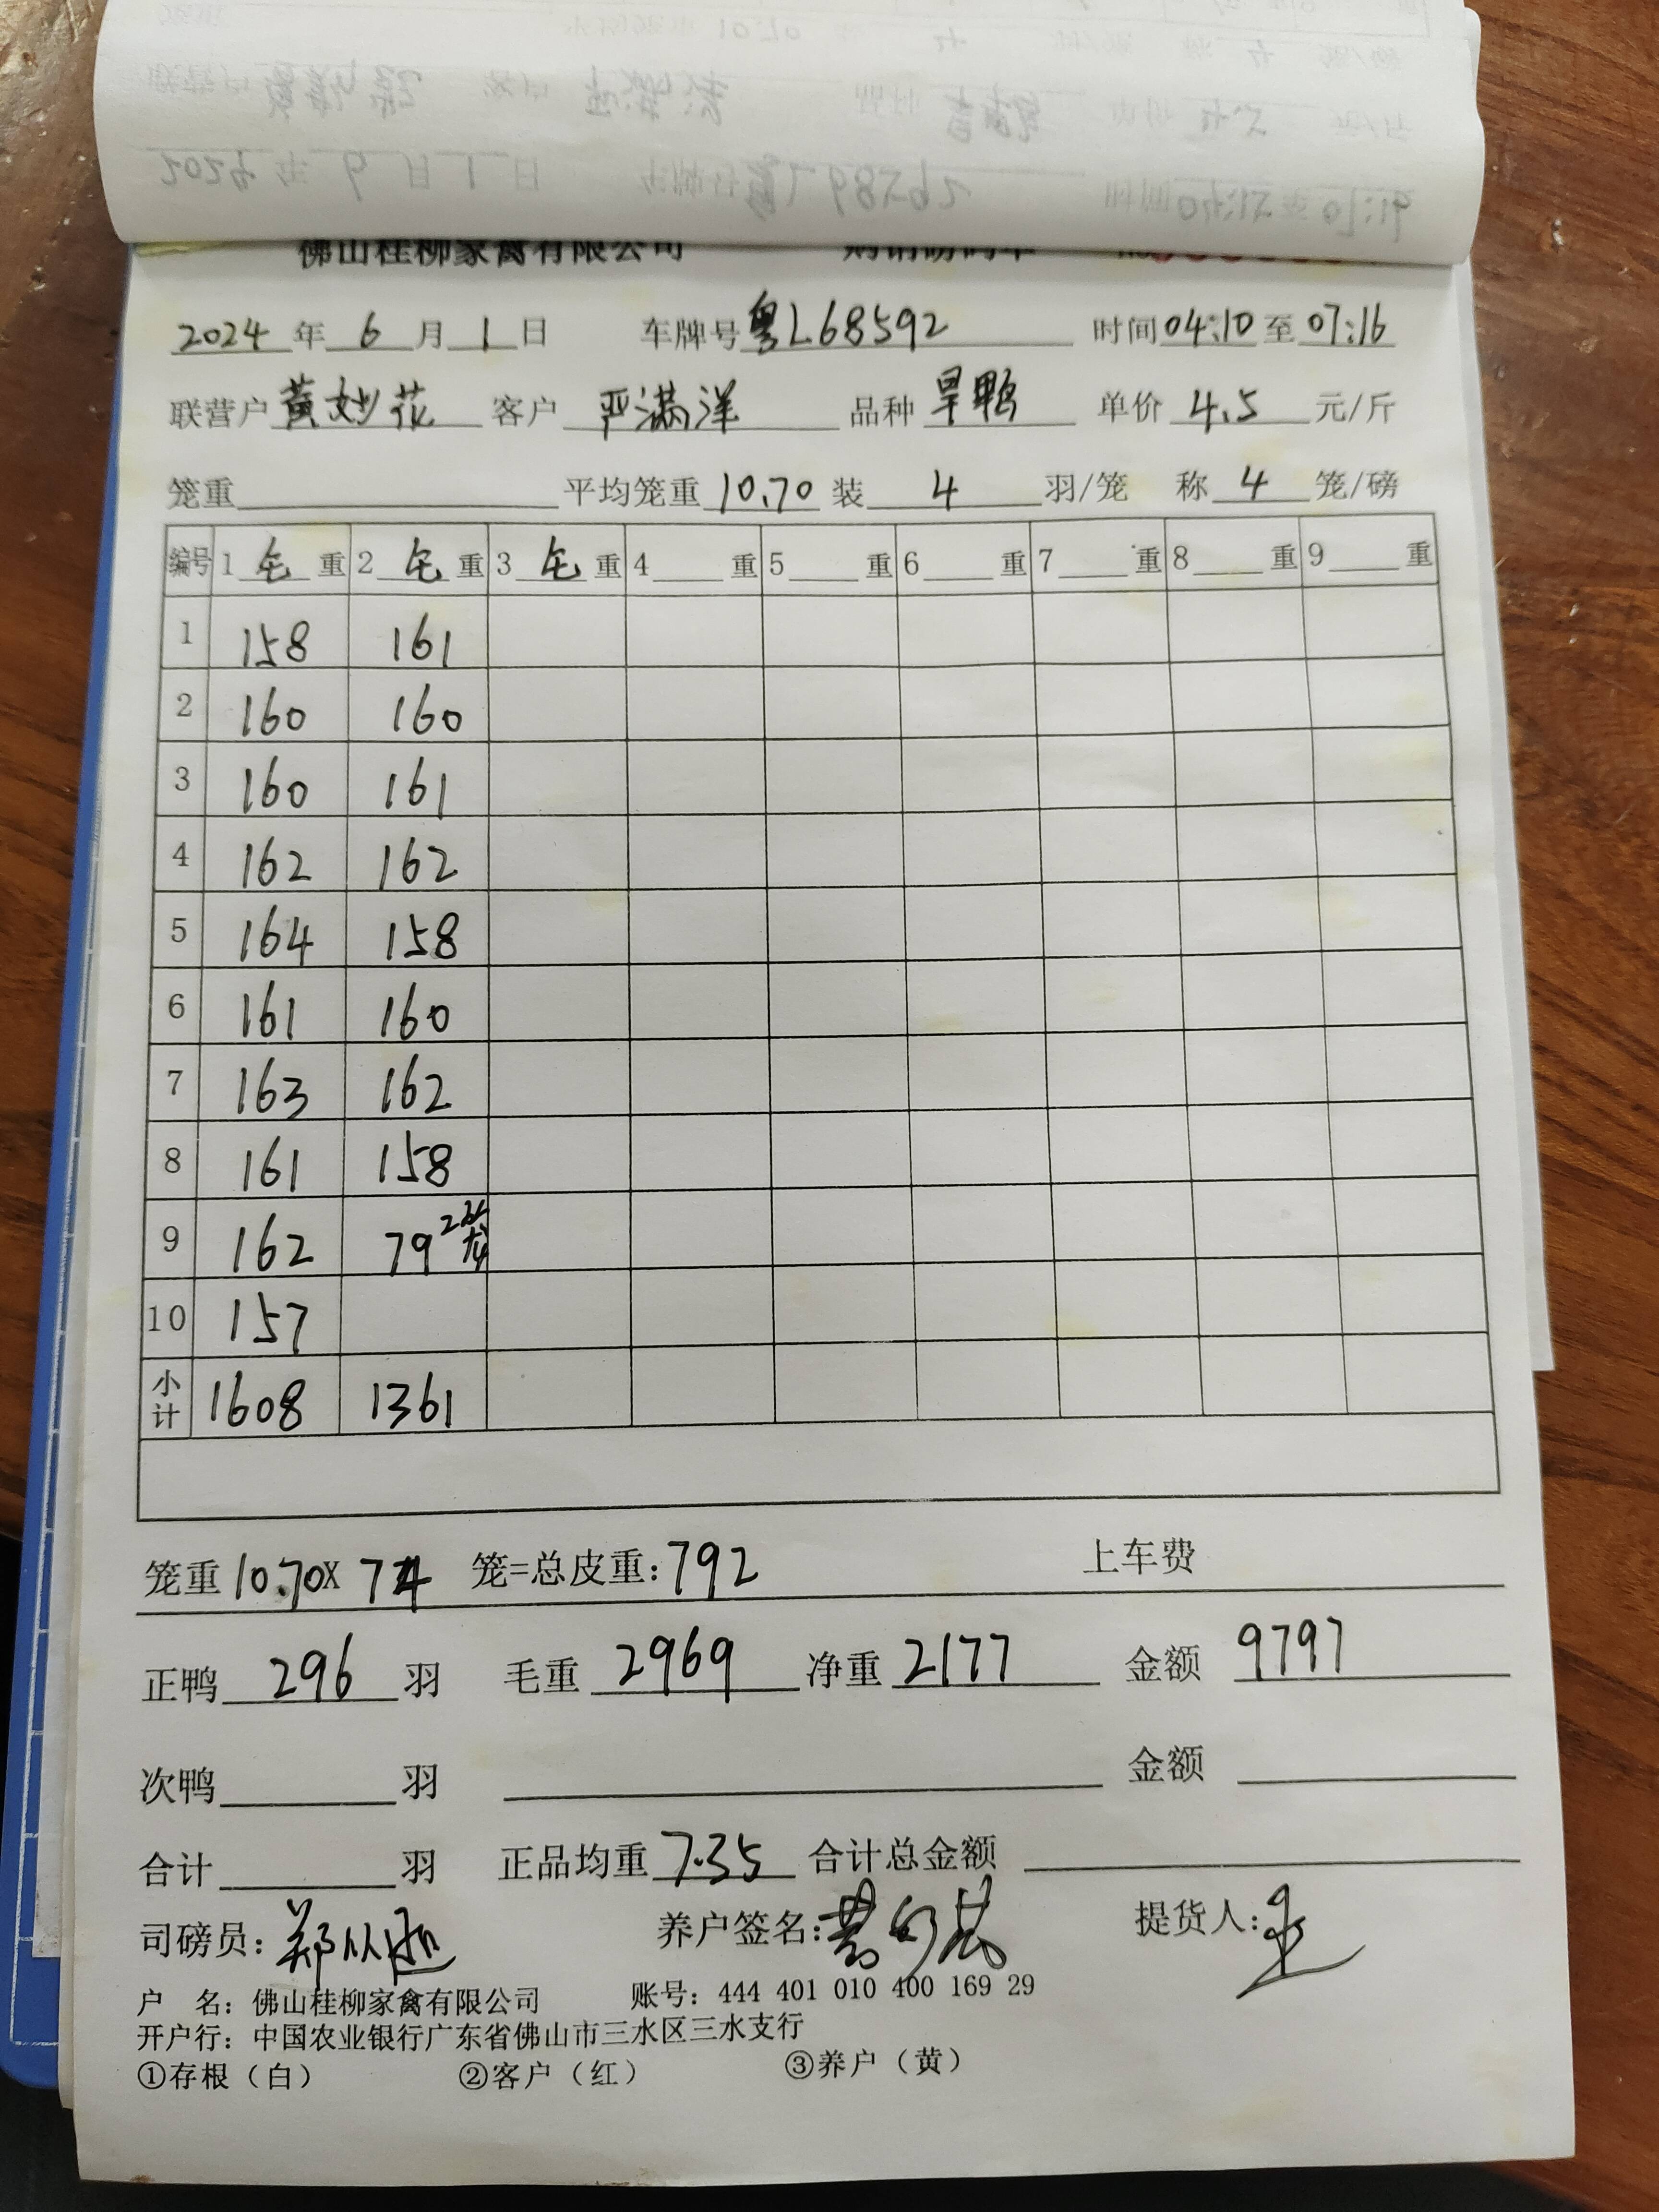 佛山桂柳家禽有限公司 购销磅码单
2024年6月1日 车牌号粤L68592 时间04:10至07:16
联营户黄妙花 客户严满洋 品种旱鸭 单价4.5元/斤
笼重 平均笼重10.70装4羽/笼 称4笼/磅
编号 1毛重 2毛重 3毛重 4重 5重 6重 7重 8重 9重
1 158 161
2 160 160
3 160 161
4 162 162
5 164 158
6 161 160
7 163 162
8 161 158
9 162 79 2笼
10 157
小计 1608 1361
笼重10.70X 74 笼=总皮重:792 上车费
正鸭296羽 毛重2969 净重2177 金额9797
次鸭 羽 金额
合计 羽 正品均重7.35 合计总金额
司磅员: 养户签名: 提货人:
户 名: 佛山桂柳家禽有限公司 账号: 444 401 010 400 169 29
开户行: 中国农业银行广东省佛山市三水区三水支行
①存根(白) ②客户(红) ③养户(黄)